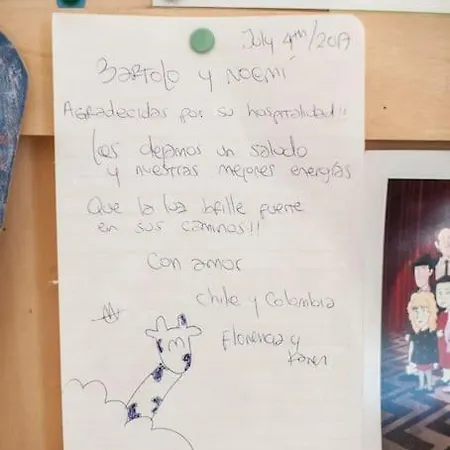 July 4th/2019
Bartolo y Noemí
Agradecidas por su hospitalidad!!
Les dejamos un saludo
y nuestras mejores energías
Que la luz brille fuerte
en sus caminos!!
Con amor
Chile y Colombia
Florencia y
Karen